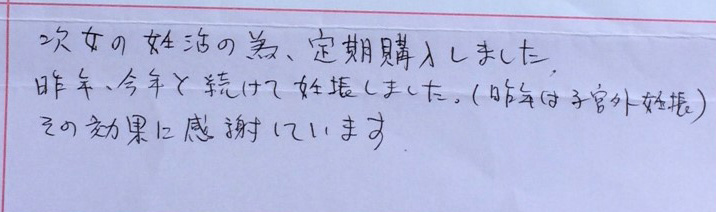 次女の妊活の為、定期購入しました。
昨年、今年と続けて妊娠しました。(昨年は子宮外妊娠)
その効果に感謝しています